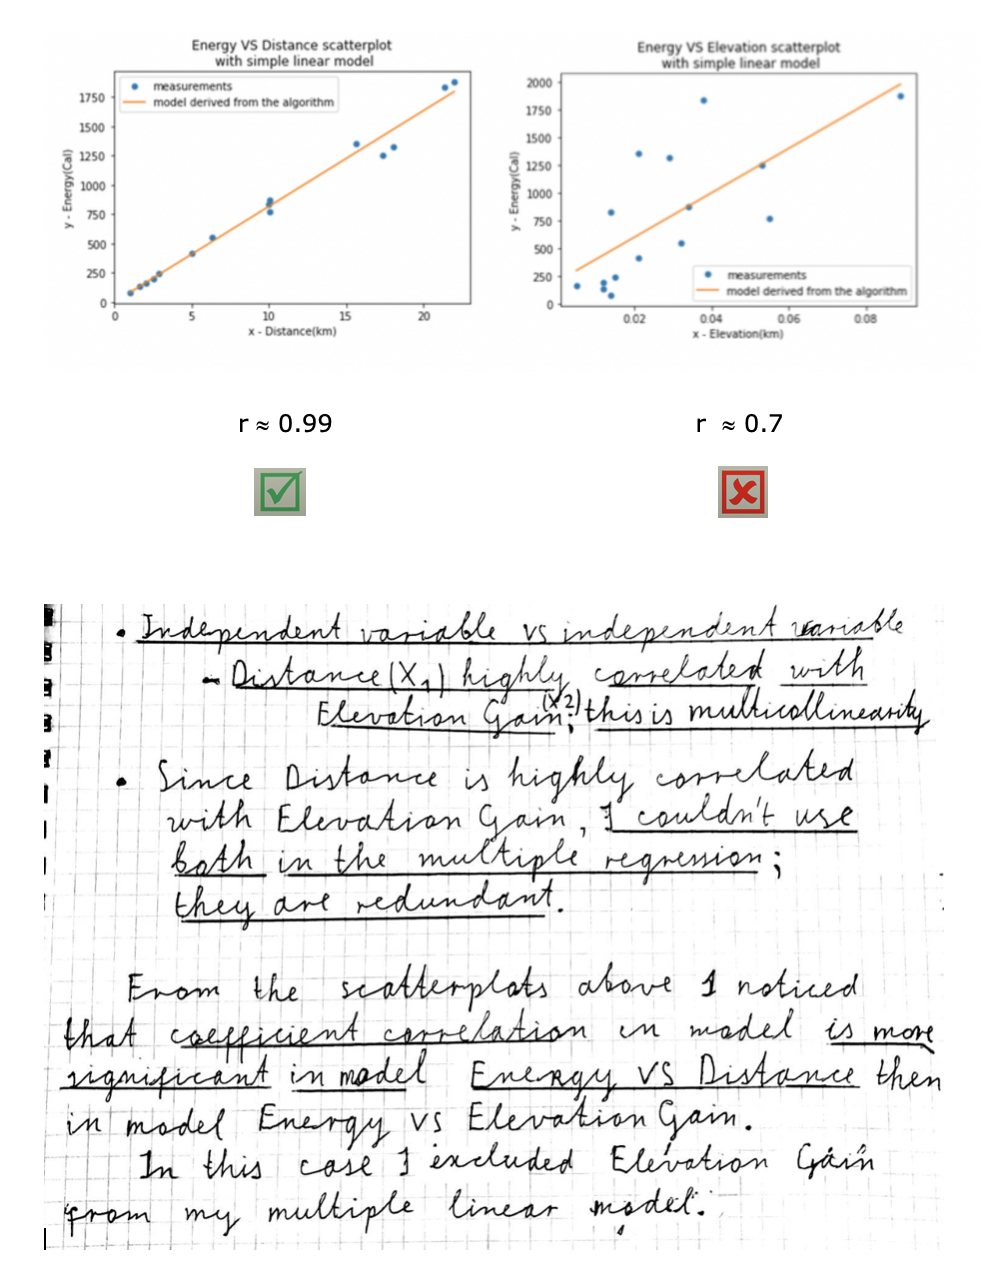 Energy VS Distance scatterplot
with simple linear model
measurements
model derived from the algorithm
y - Energy(Cal)
1750
1500
1250
1000
750
500
250
0
0 5 10 15 20
x - Distance(km)
Energy VS Elevation scatterplot
with simple linear model
y - Energy(Cal)
2000
1750
1500
1250
1000
750
500
250
0
measurements
model derived from the algorithm
0.02 0.04 0.06 0.08
x - Elevation(km)
r ≈ 0.99
r ≈ 0.7
• Independent variable vs independent variable
- Distance (X1) highly correlated with
Elevation Gain (X2); this is multicollinearity
• Since Distance is highly correlated
with Elevation Gain, I couldn't use
both in the multiple regression;
they are redundant.
From the scatterplots above I noticed
that coefficient correlation in model is more
significant in model Energy VS Distance then
in model Energy vs Elevation Gain.
In this case I excluded Elevation Gain
from my multiple linear model.